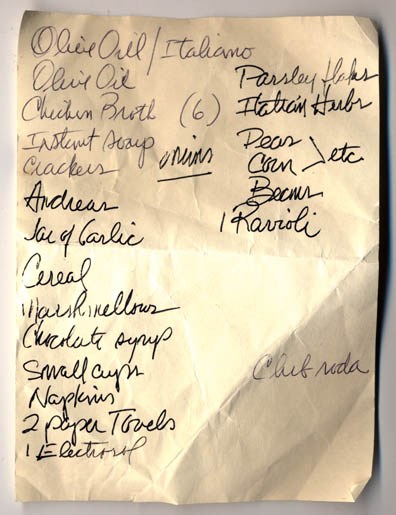 Olive Oil / Italiano
Olive Oil
Chicken Broth (6)
Instant soup
Crackers
onions
Andreas
Jar of Garlic
Cereal
Marshmellows
Chocolate syrup
Small cups
Napkins
2 paper Towels
1 Electrosol
Parsley flakes
Italian Herbs
Peas
Corn } etc
Beans
1 Ravioli
Club soda